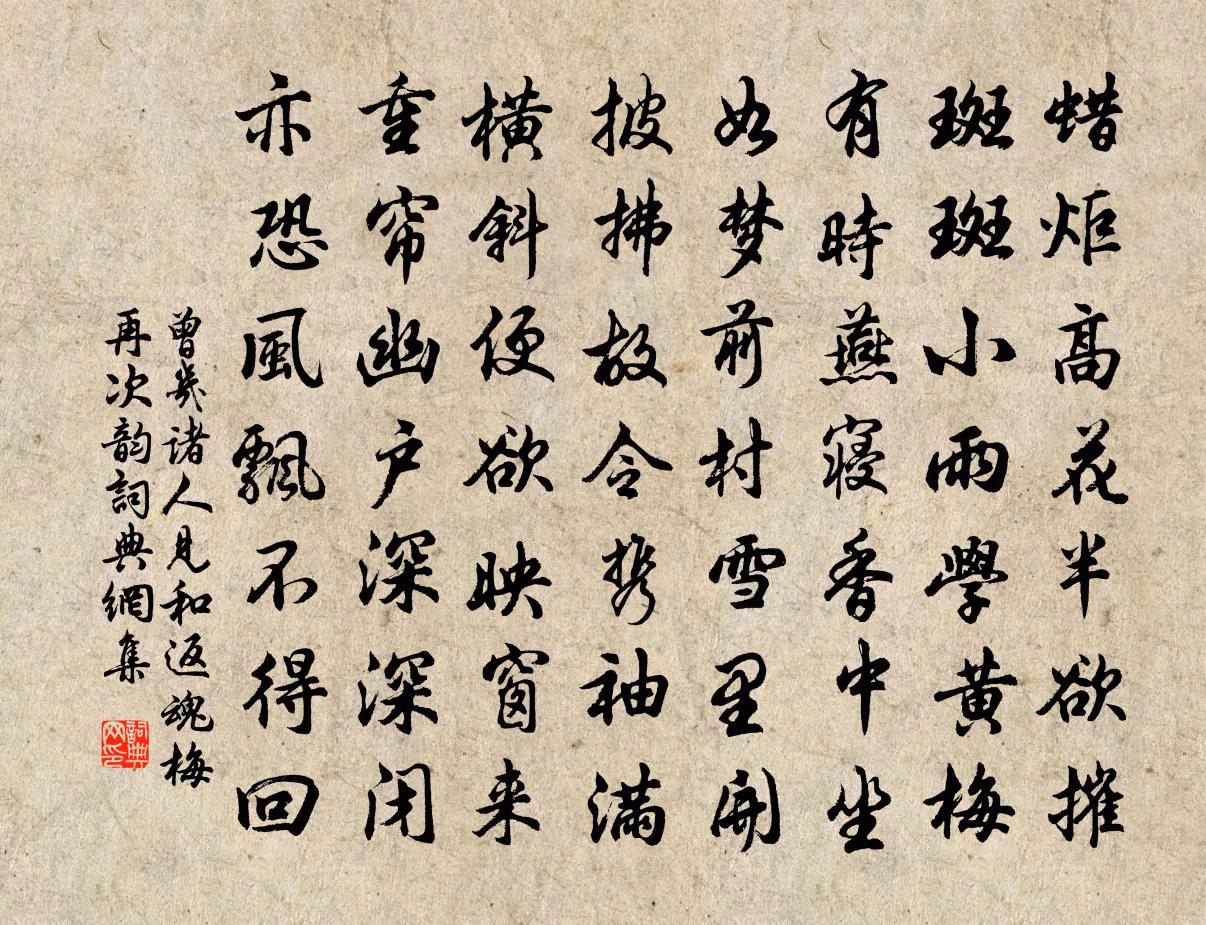 蜡炬高花半欲摧
斑斑小雨學黄梅
有時燕寝香中坐
如梦前村雪里開
披拂故令携袖满
横斜便欲映窗来
重帘幽户深深闭
亦恐風飘不得回
曾幾诸人見和返魂梅
再次韵詞典網集
詞典网印